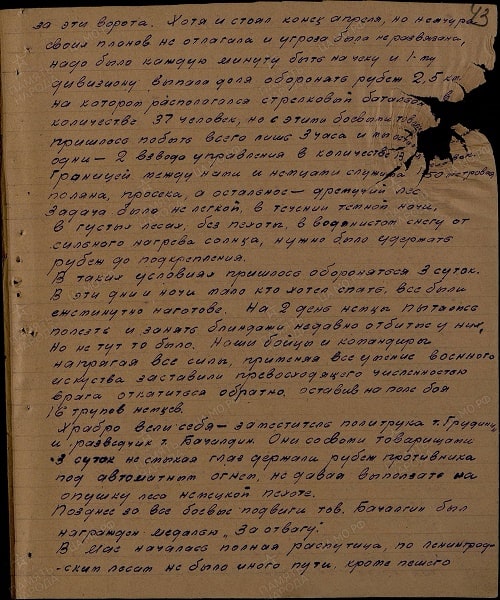 43
за эти ворота. Хотя и стоял конец апреля, но немчура
своих планов не отлагала и угроза была не развязана,
надо было каждую минуту быть начеку и 1-му
дивизиону выпала доля оборонять рубеж 2,5 км.
на котором располагался стрелковой баталион в
количестве 37 человек, но с этими боевыми
пришлось побыть всего лишь 3 часа и мы
одни – 2 взвода управления в количестве
Границей между нами и немцами служила 150 метровая
поляна, просека, а остальное – дремучий лес.
Задача была не легкой, в течении темной ночи,
в густых лесах, без пехоты, в водянистом снегу от
сильного нагрева солнца, нужно было удержать
рубеж до подкрепления.
В таких условиях пришлось обороняться 3 суток.
В эти дни и ночи мало кто хотел спать, все были
ежеминутно наготове. На 2 день немцы пытались
полезть и занять блиндажи недавно отбитые у них,
Но не тут то было. Наши бойцы и командиры
напрягая все силы, применяя все умение военного
искуства заставили превосходящего численностью
врага откатиться обратно, оставив на поле боя
16 трупов немцев.
Храбро вели себя – заместитель политрука т. Грудинин
и разведчик т. Бачалдин. Они со своими товарищами
3 суток не смыкая глаз держали рубеж противника
под автоматным огнем, не давая выползать на
опушку леса немецкой пехоте.
Позднее за все боевые подвиги тов. Бачалгин был
награжден медалью „За отвагу".
В мае началась полная распутица, по ленинград-
-ским лесам не было иного пути, кроме пешего